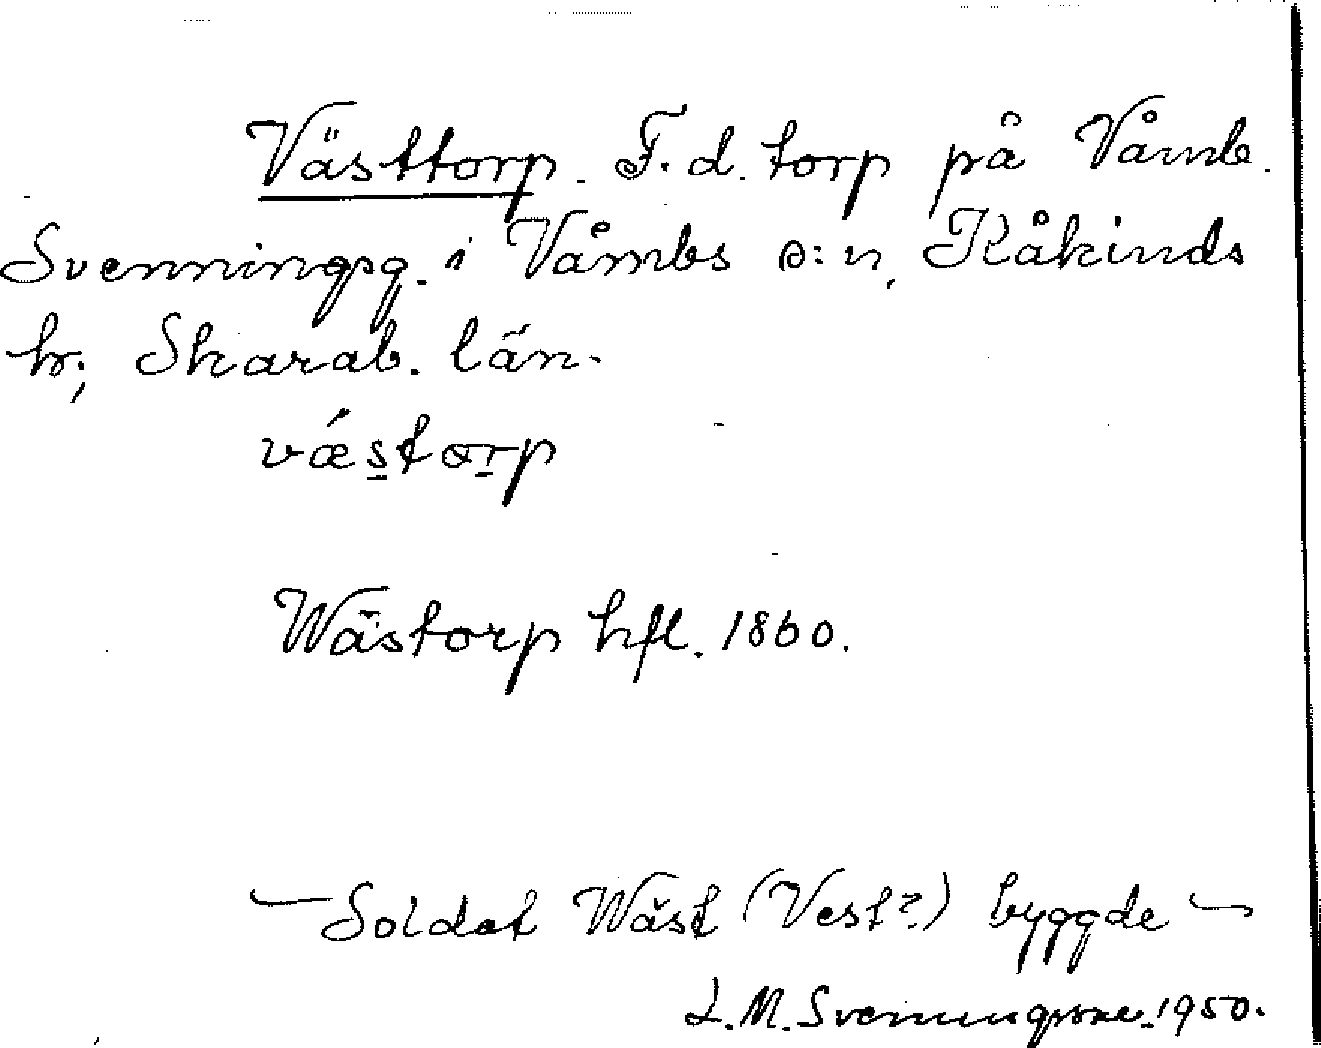 Västtorp. F.d. torp på Våmb.
Svenningsg. i Våmbs s:n, Kåkinds
hr, Skarab. län.
vǽstorp
Wästorp hfl. 1860.
— Soldat Wäst (Vest?) byggde —
L.M. Svenningsson. 1950.